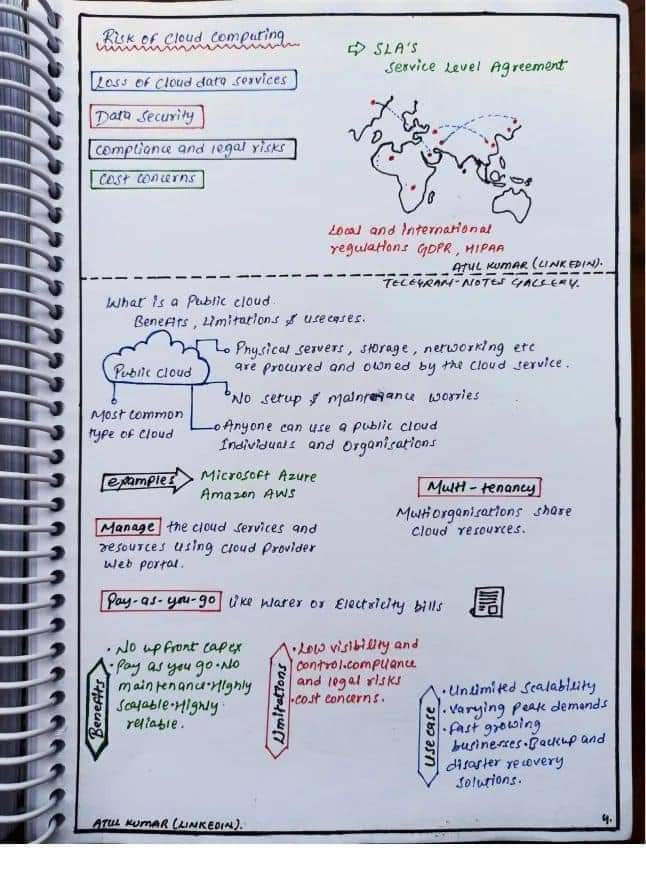 Risk of Cloud Computing
Loss of cloud data services
Data Security
Compliance and legal risks
Cost concerns
⇨ SLA'S
Service Level Agreement
Local and International
regulations GDPR, HIPAA
ATUL KUMAR (LINKEDIN).
TELEGRAM-NOTES GALLERY.
What is a Public cloud.
Benefits, Limitations & usecases.
Public cloud
Physical servers, storage, networking etc
are procured and owned by the cloud service.
No setup & maintenance worries
Most common
type of cloud
Anyone can use a public cloud
Individuals and Organisations
examples
Microsoft Azure
Amazon AWS
Multi-tenancy
Multiorganisations share
cloud resources.
Manage the cloud services and
resources using cloud Provider
web portal.
Pay-as-you-go like water or Electricity bills
Benefits
• No upfront capex
• Pay as you go • No
maintenance • Highly
scalable • Highly
reliable.
Limitations
• Low visibility and
control • compliance
and legal risks
• cost concerns.
Use case
• Unlimited Scalability
• Varying peak demands
• Fast growing
businesses • Backup and
disaster recovery
solutions.
ATUL KUMAR (LINKEDIN).
4.